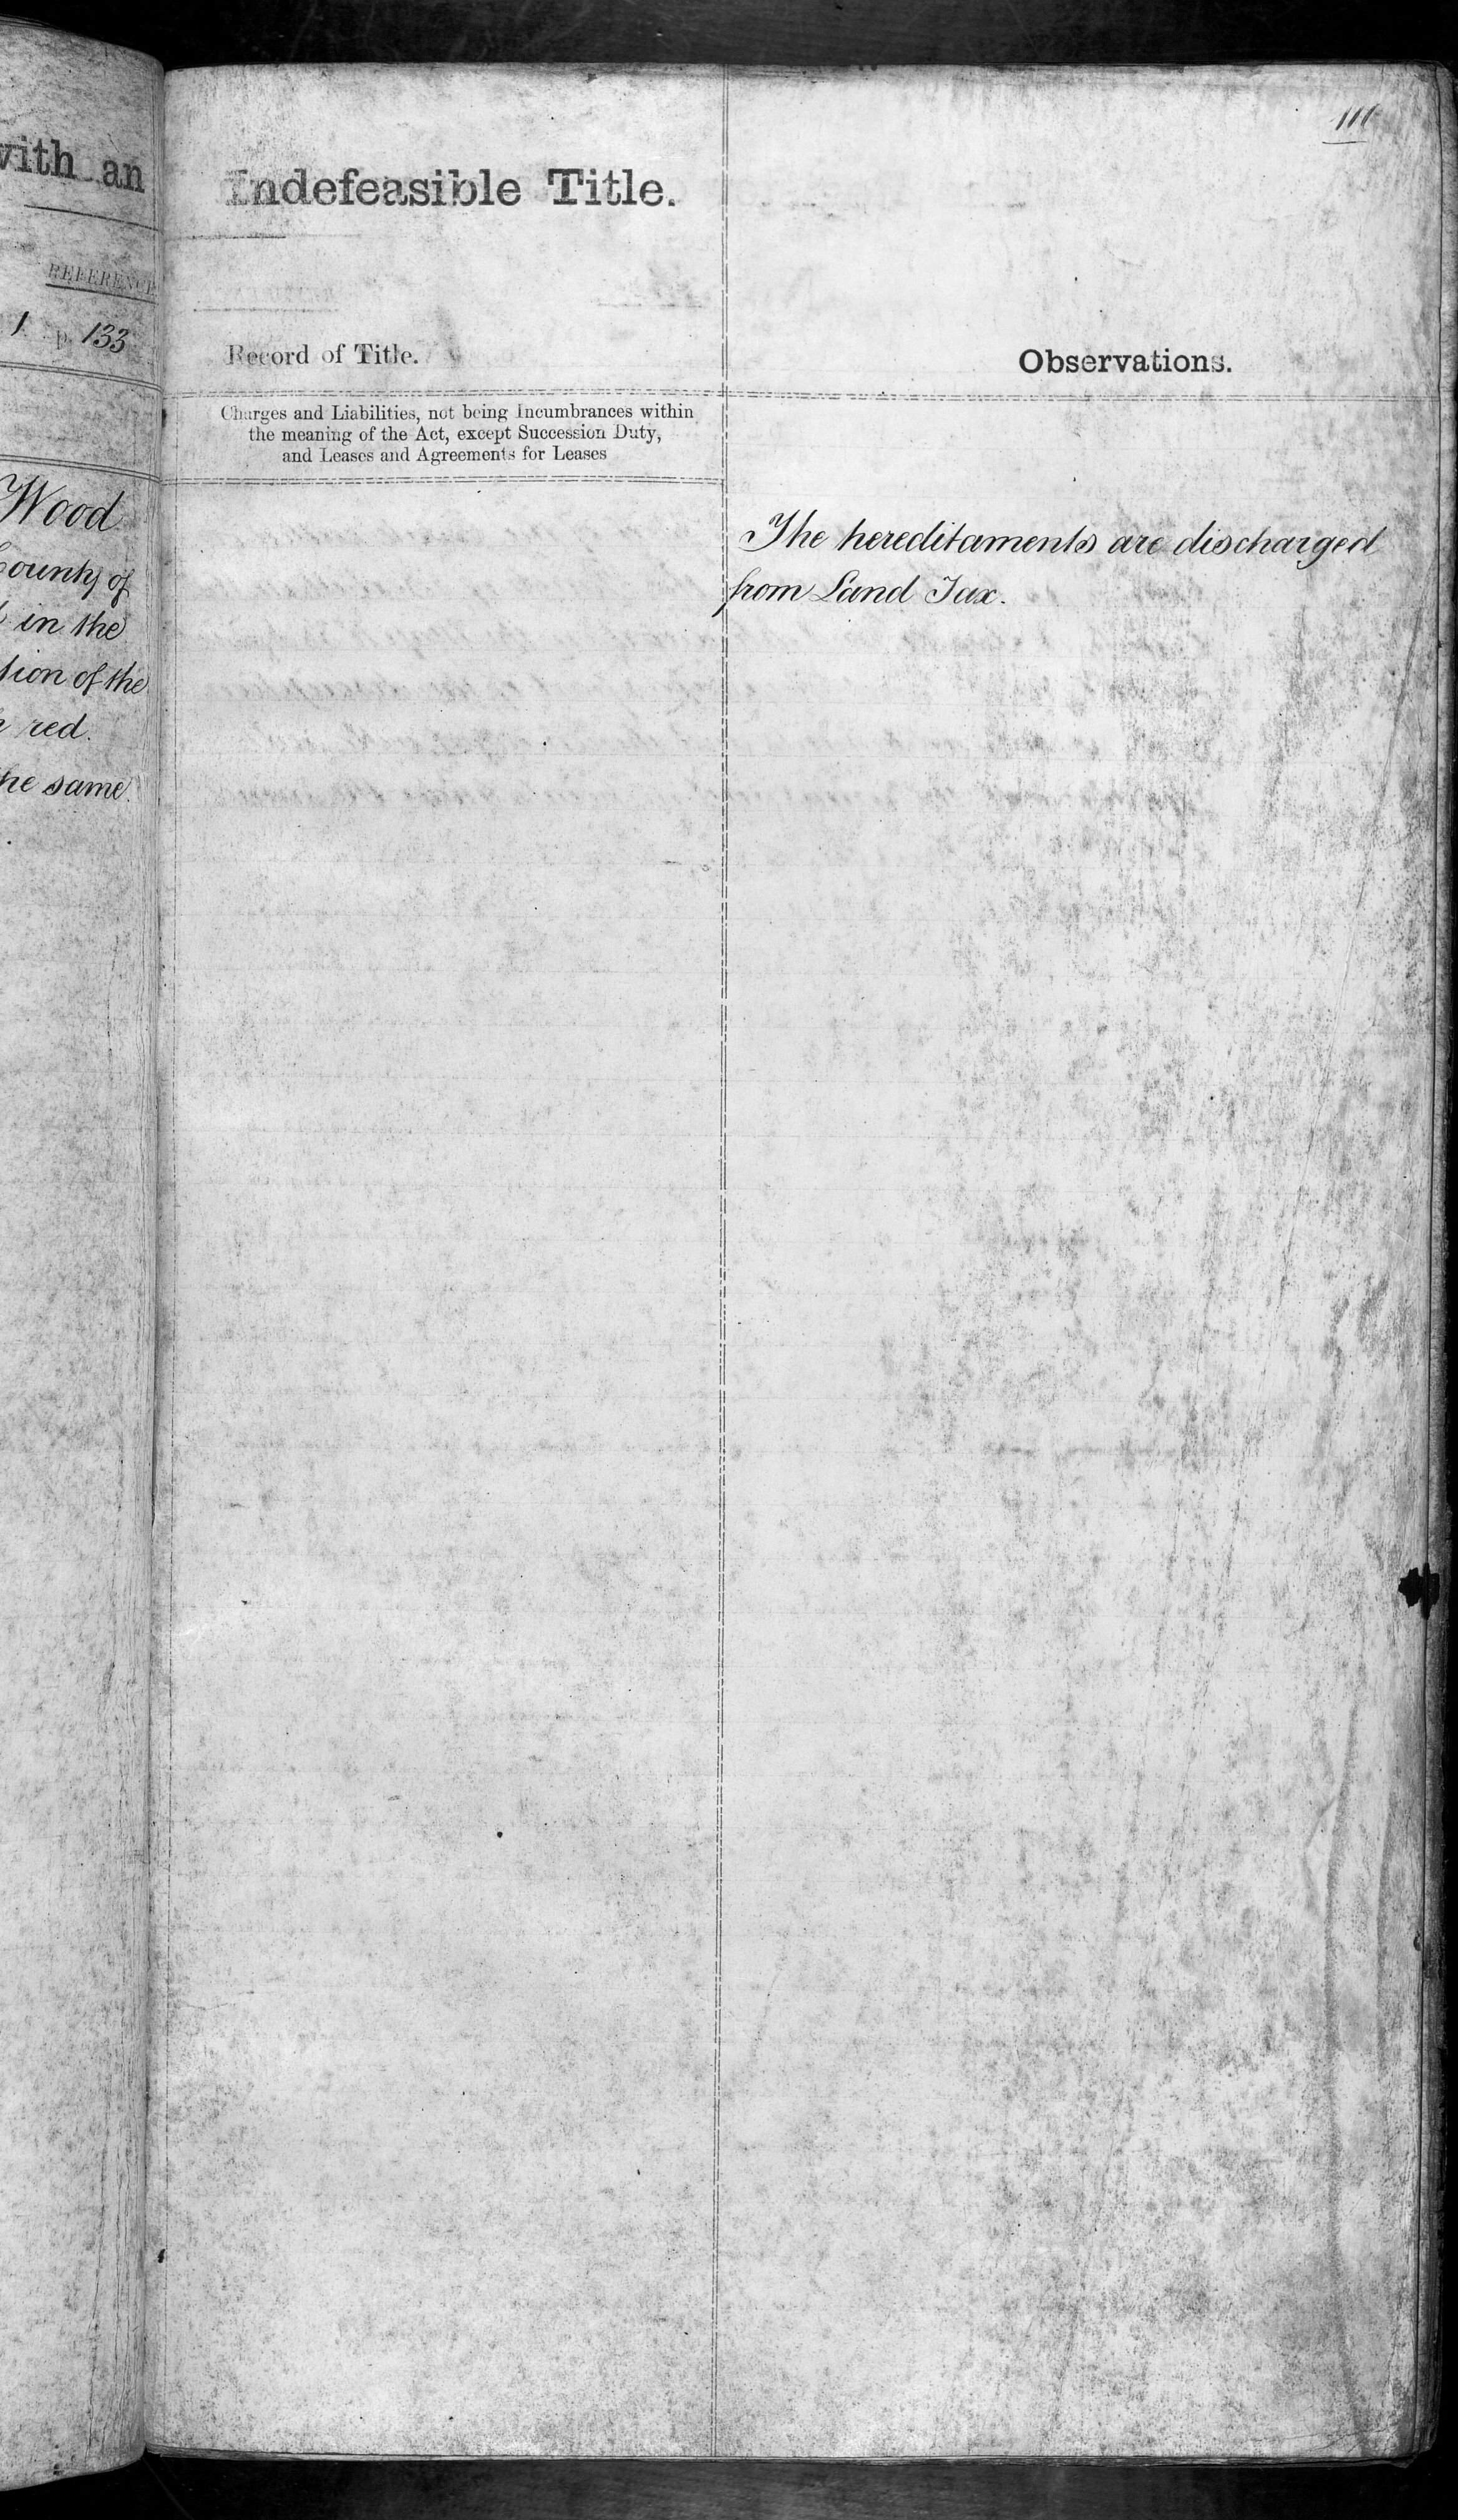 with an
REFERENCE
1 p. 133
Wood
County of
in the
tion of the
red.
the same.
111
Indefeasible Title.
Record of Title.
Observations.
Charges and Liabilities, not being Incumbrances within
the meaning of the Act, except Succession Duty,
and Leases and Agreements for Leases
The hereditaments are discharged
from Land Tax.